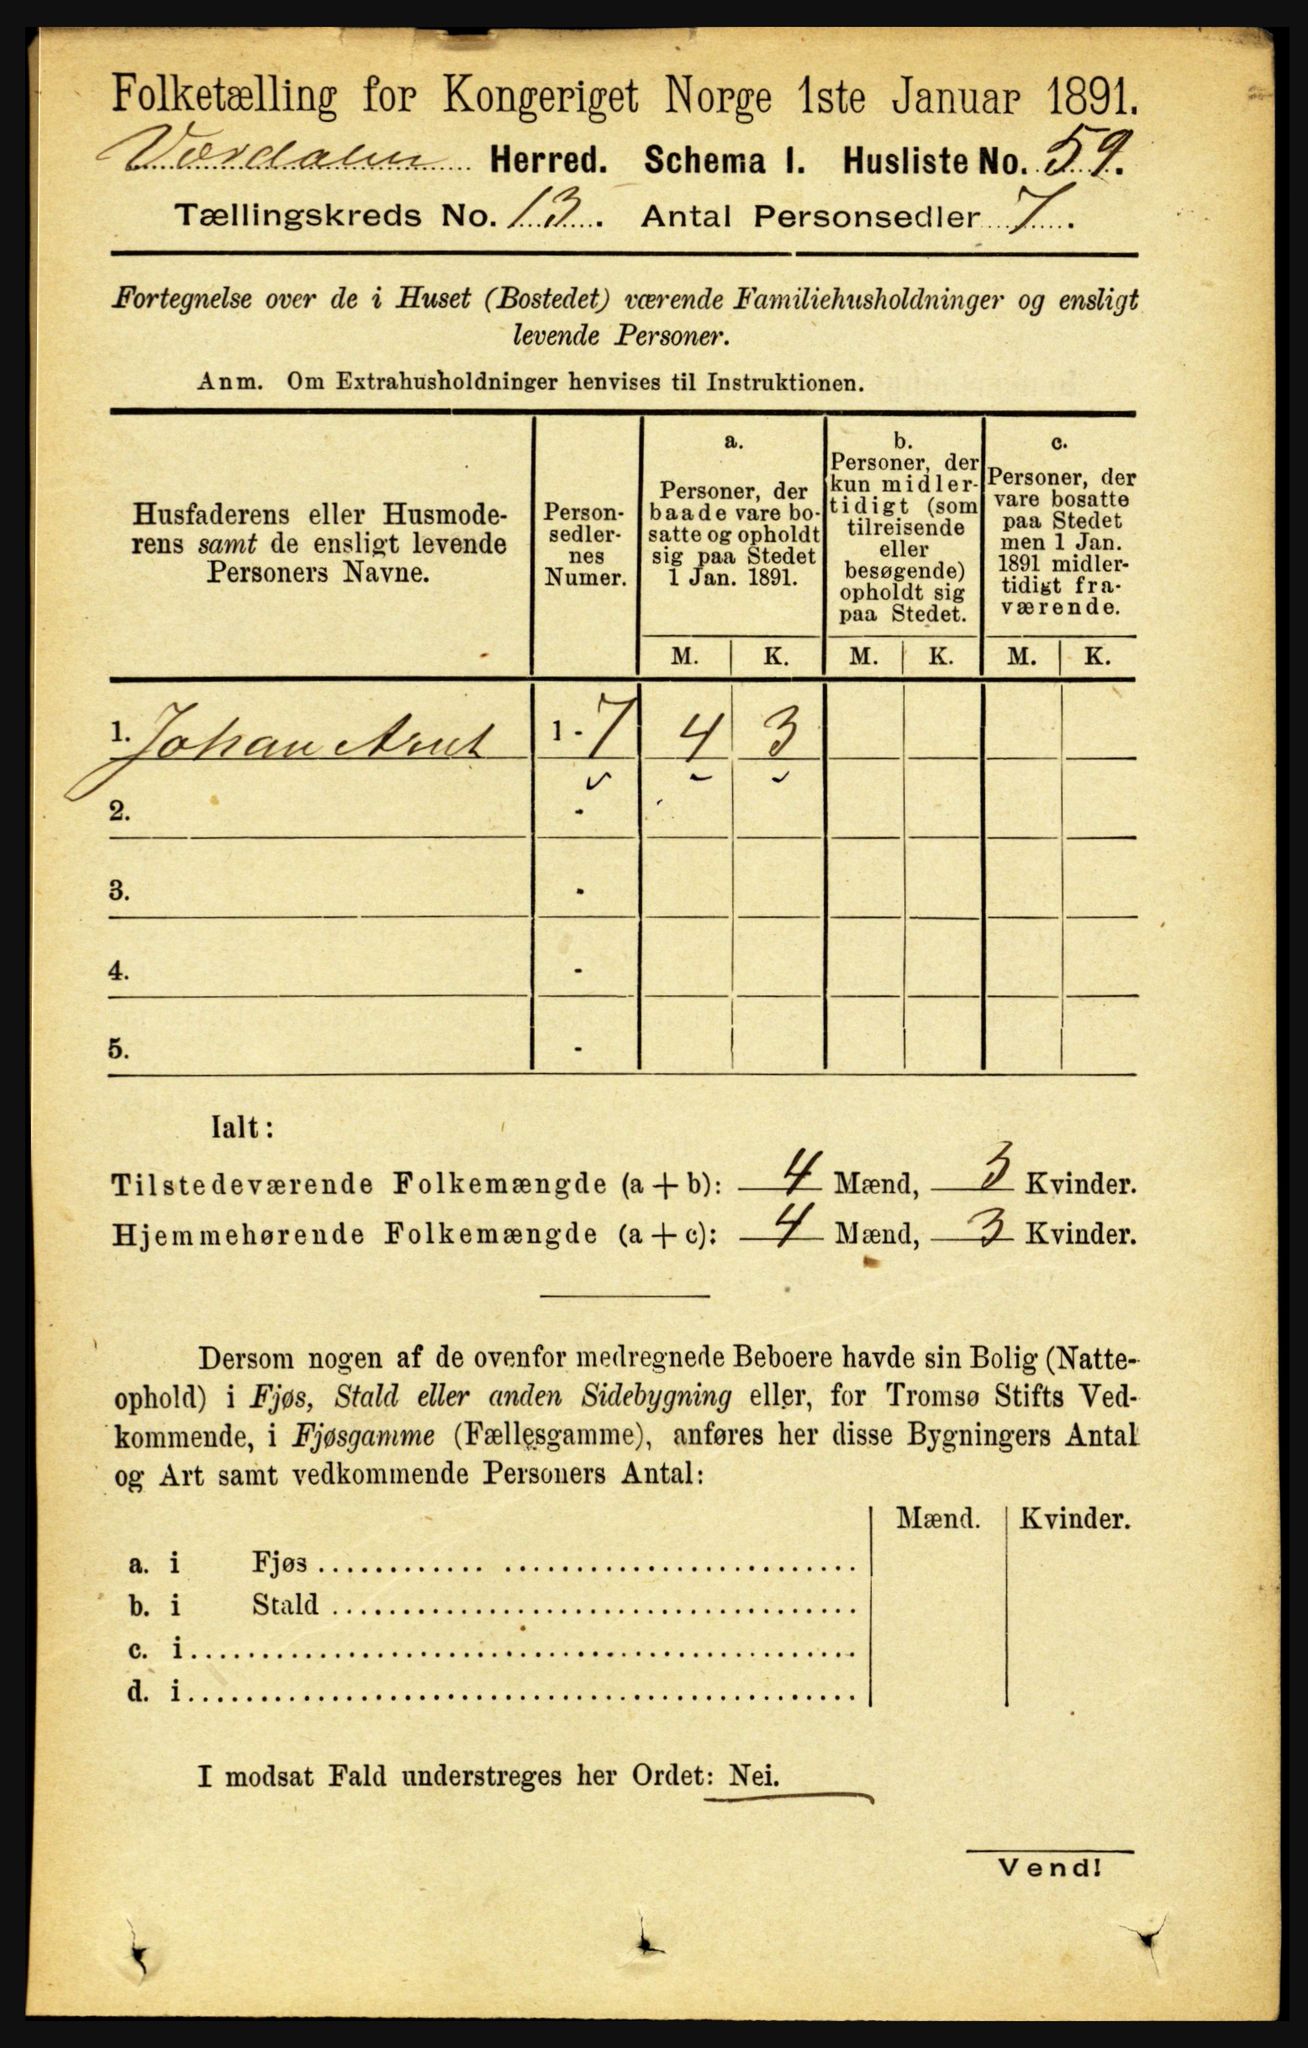 Folketælling for Kongeriget Norge 1ste Januar 1891.
Værdalen Herred. Schema I. Husliste No. 59.
Tællingskreds No. 13. Antal Personsedler 7.
Fortegnelse over de i Huset (Bostedet) værende Familiehusholdninger og ensligt
levende Personer.
Anm. Om Extrahusholdninger henvises til Instruktionen.
Husfaderens eller Husmode-
rens samt de ensligt levende
Personers Navne.
Person-
sedler-
nes
Numer.
a.
Personer, der
baade vare bo-
satte og opholdt
sig paa Stedet
1 Jan. 1891.
b.
Personer, der
kun midler-
tidigt (som
tilreisende
eller
besøgende)
opholdt sig
paa Stedet.
c.
Personer, der
vare bosatte
paa Stedet
men 1 Jan.
1891 midler-
tidigt fra-
værende.
M. K. M. K. M. K.
1. Johan Arnt 1 - 7 4 3
2. -
3. -
4. -
5. -
Ialt:
Tilstedeværende Folkemængde (a + b): 4 Mænd, 3 Kvinder.
Hjemmehørende Folkemængde (a + c): 4 Mænd, 3 Kvinder.
Dersom nogen af de ovenfor medregnede Beboere havde sin Bolig (Natte-
ophold) i Fjøs, Stald eller anden Sidebygning eller, for Tromsø Stifts Ved-
kommende, i Fjøsgamme (Fællesgamme), anføres her disse Bygningers Antal
og Art samt vedkommende Personers Antal:
Mænd. Kvinder.
a. i Fjøs
b. i Stald
c. i
d. i
I modsat Fald understreges her Ordet: Nei.
Vend!